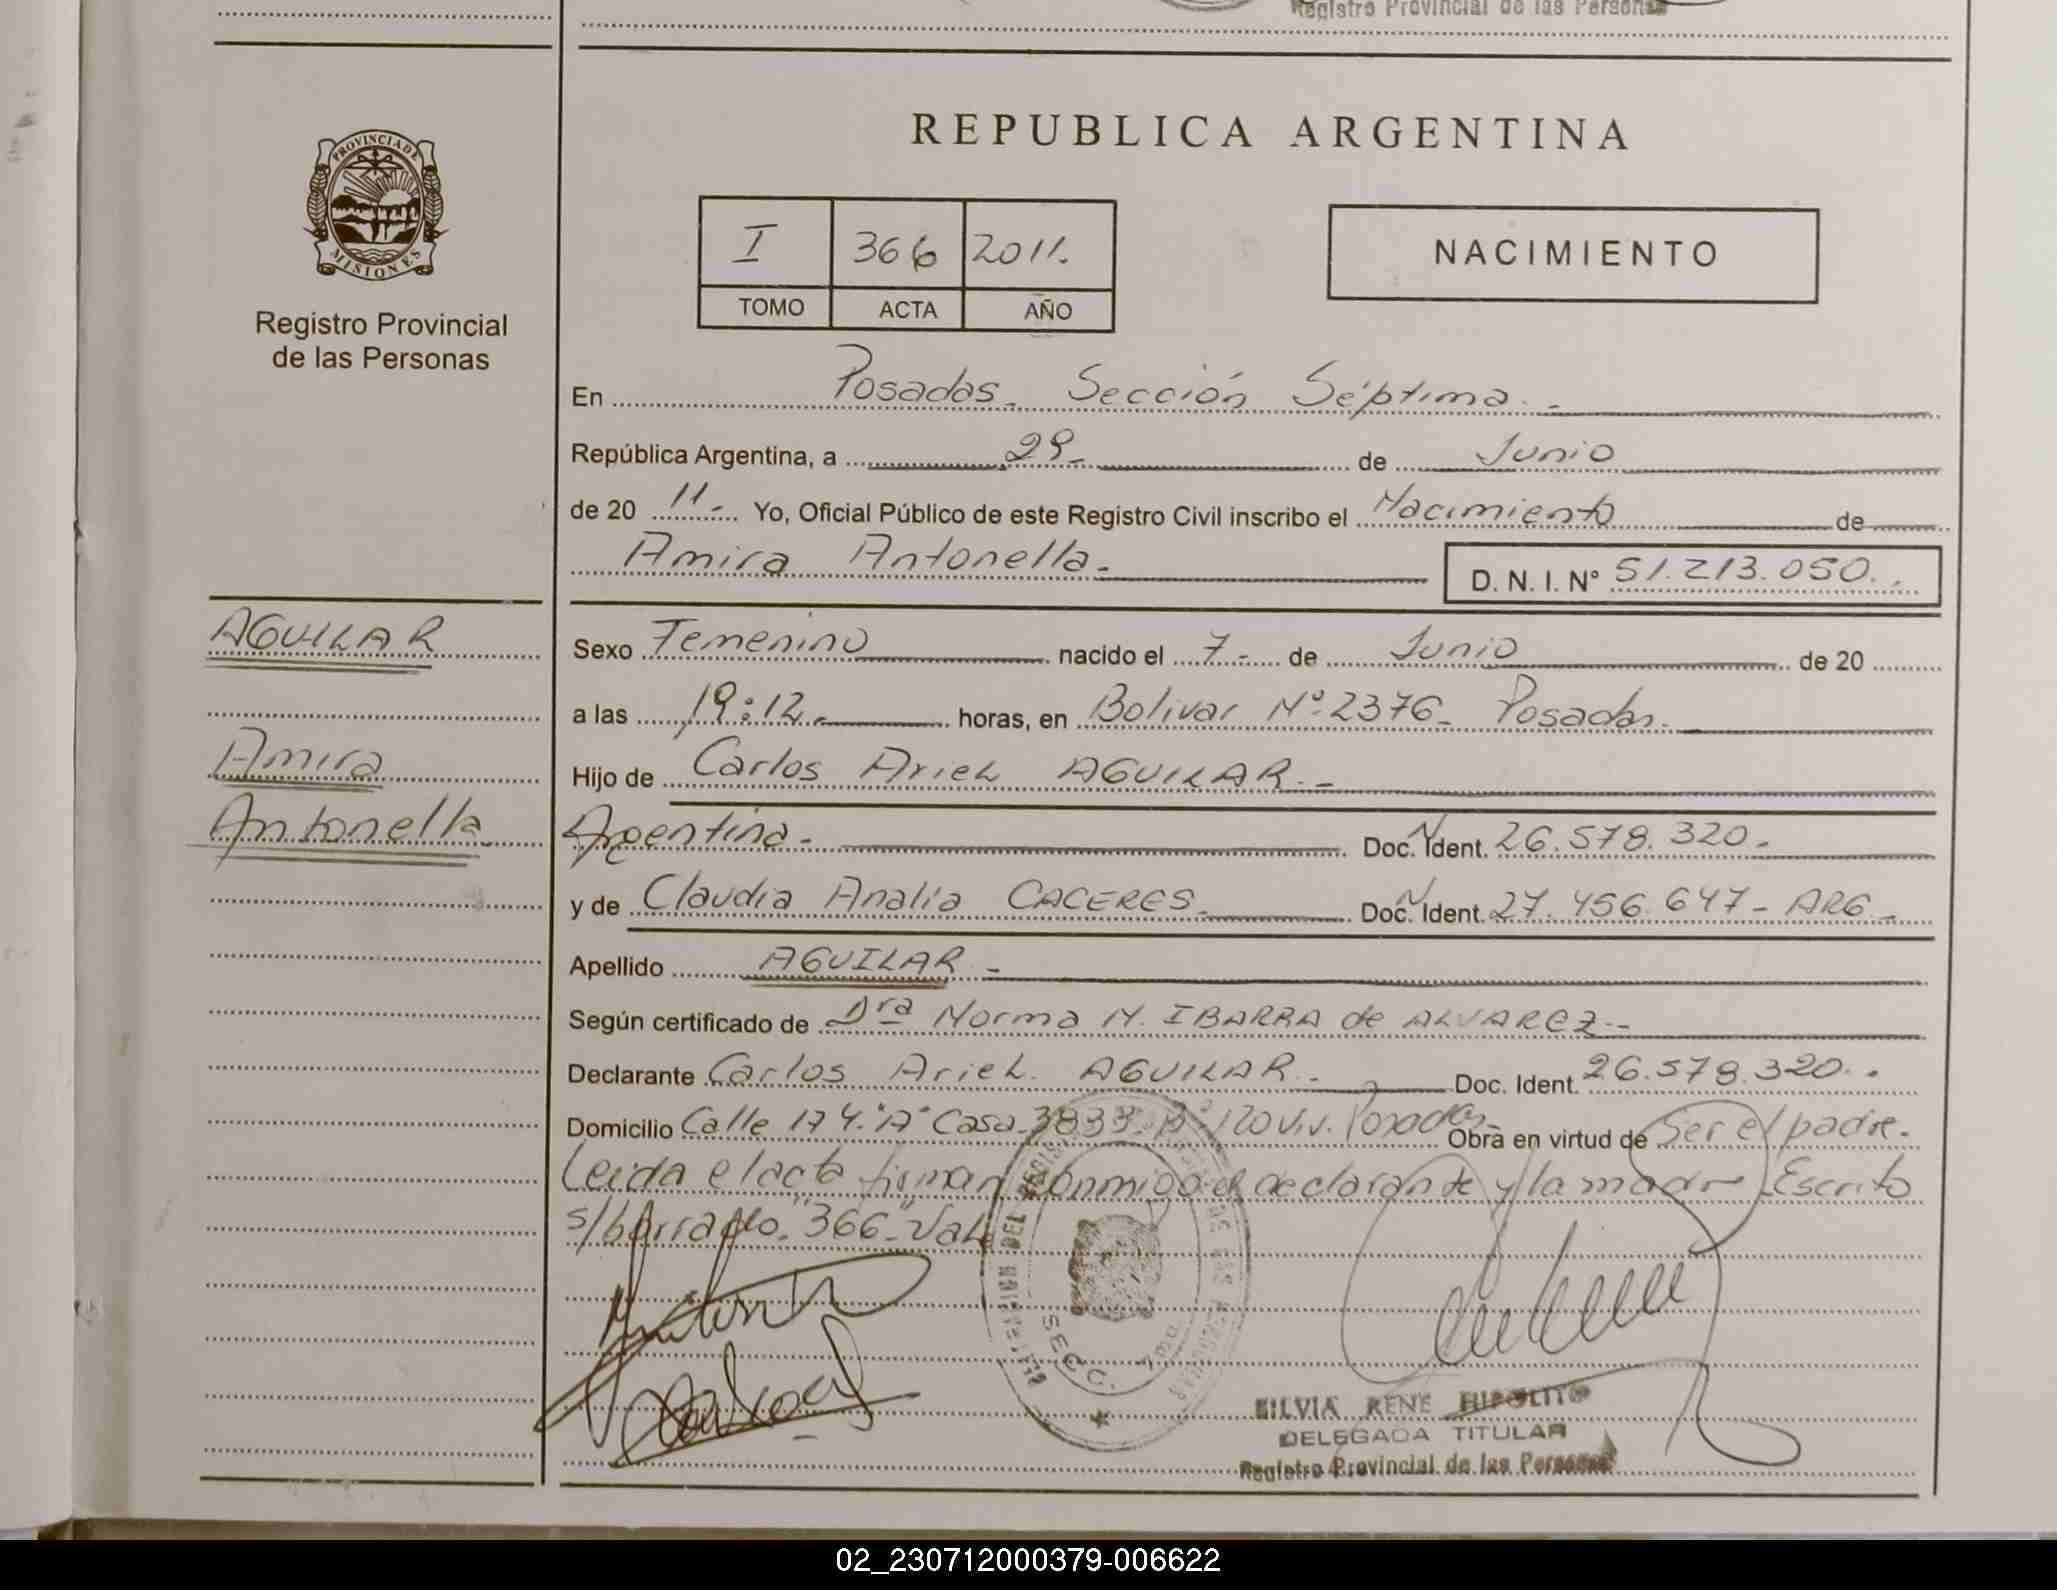 Registro Provincial de las Personas
PROVINCIA DE
MISIONES
Registro Provincial
de las Personas
REPUBLICA ARGENTINA
I 366 2011.
TOMO ACTA AÑO
NACIMIENTO
En Posadas. Sección Séptima. -
República Argentina, a 29- de Junio
de 20 11.- Yo, Oficial Público de este Registro Civil inscribo el Nacimiento de
Amira Antonella.- D. N. I. N° 51.213.050.
AGUILAR
Amira
Antonella
Sexo Femenino nacido el 7.- de Junio de 20
a las 19:12.- horas, en Bolivar Nº 2376- Posadas.
Hijo de Carlos Ariel AGUILAR. -
Argentina.- Doc. Ident. 26.578.320.
y de Claudia Analía CACERES. Doc. Ident. 27.456.647- ARG -
Apellido AGUILAR -
Según certificado de Dra Norma M. IBARRA de ALVAREZ.-
Declarante Carlos Ariel AGUILAR. - Doc. Ident. 26.578.320.
Domicilio Calle 174 "A" Casa 3833 Bº 120 Viv. Posadas Obra en virtud de Ser el padre.
Leida el acta firman conmigo el declarante y la madre Escrito
s/borrado "366" Vale
SECC. 7ma
SILVIA RENE HIPOLITO
DELEGADA TITULAR
Registro Provincial de las Personas
02_230712000379-006622